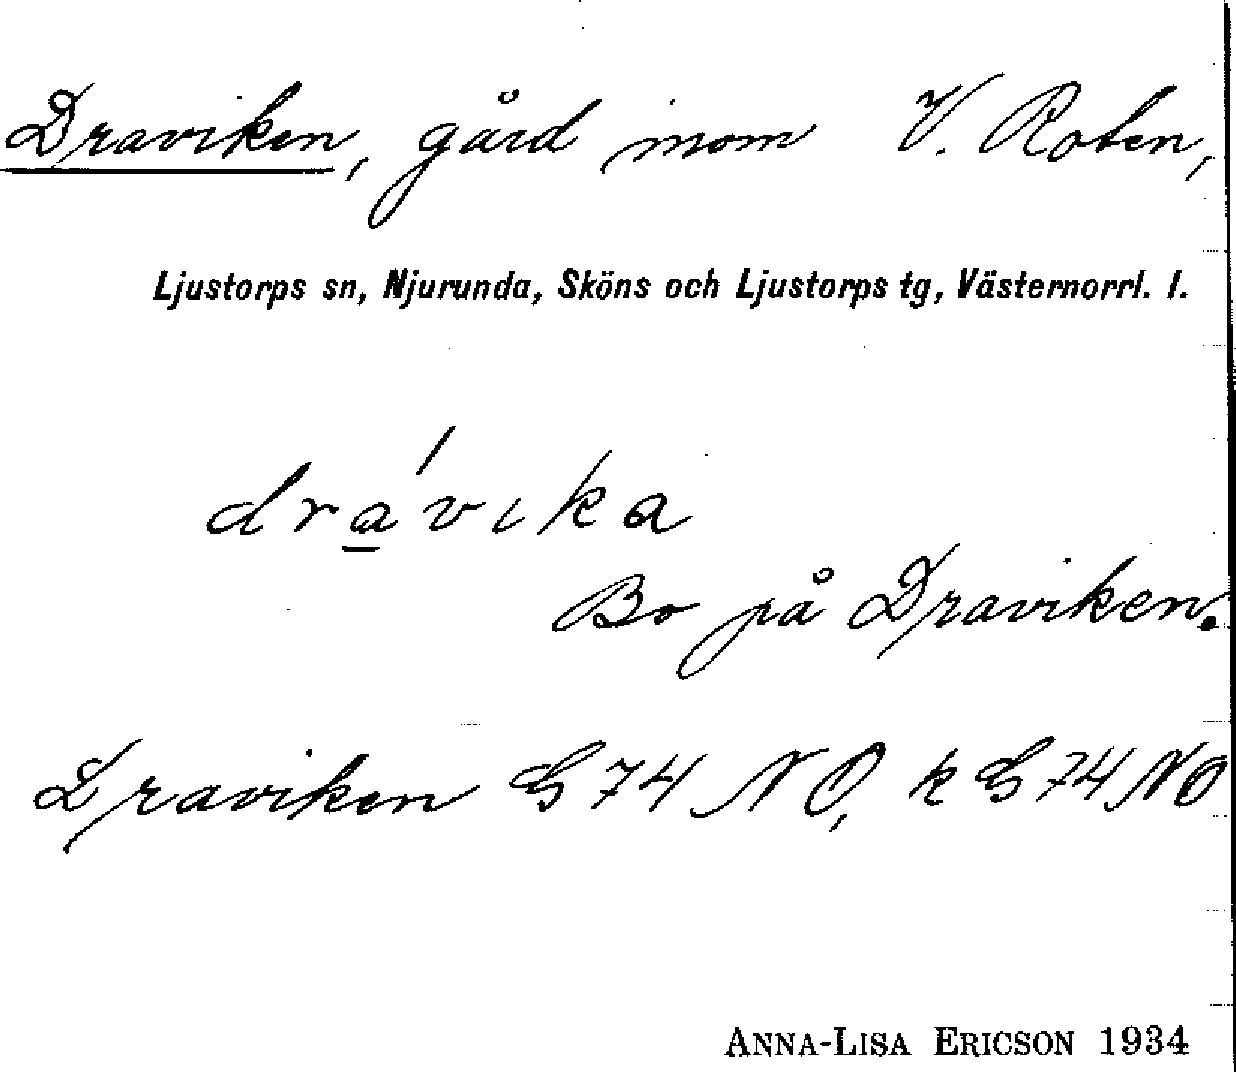 Draviken, gård inom V. Roten,
Ljustorps sn, Njurunda, Sköns och Ljustorps tg, Västernorrl. l.
dra̲´vıka
Bo på Draviken.
Draviken G 74 NO, k G 74 NO
ANNA-LISA ERICSON 1934